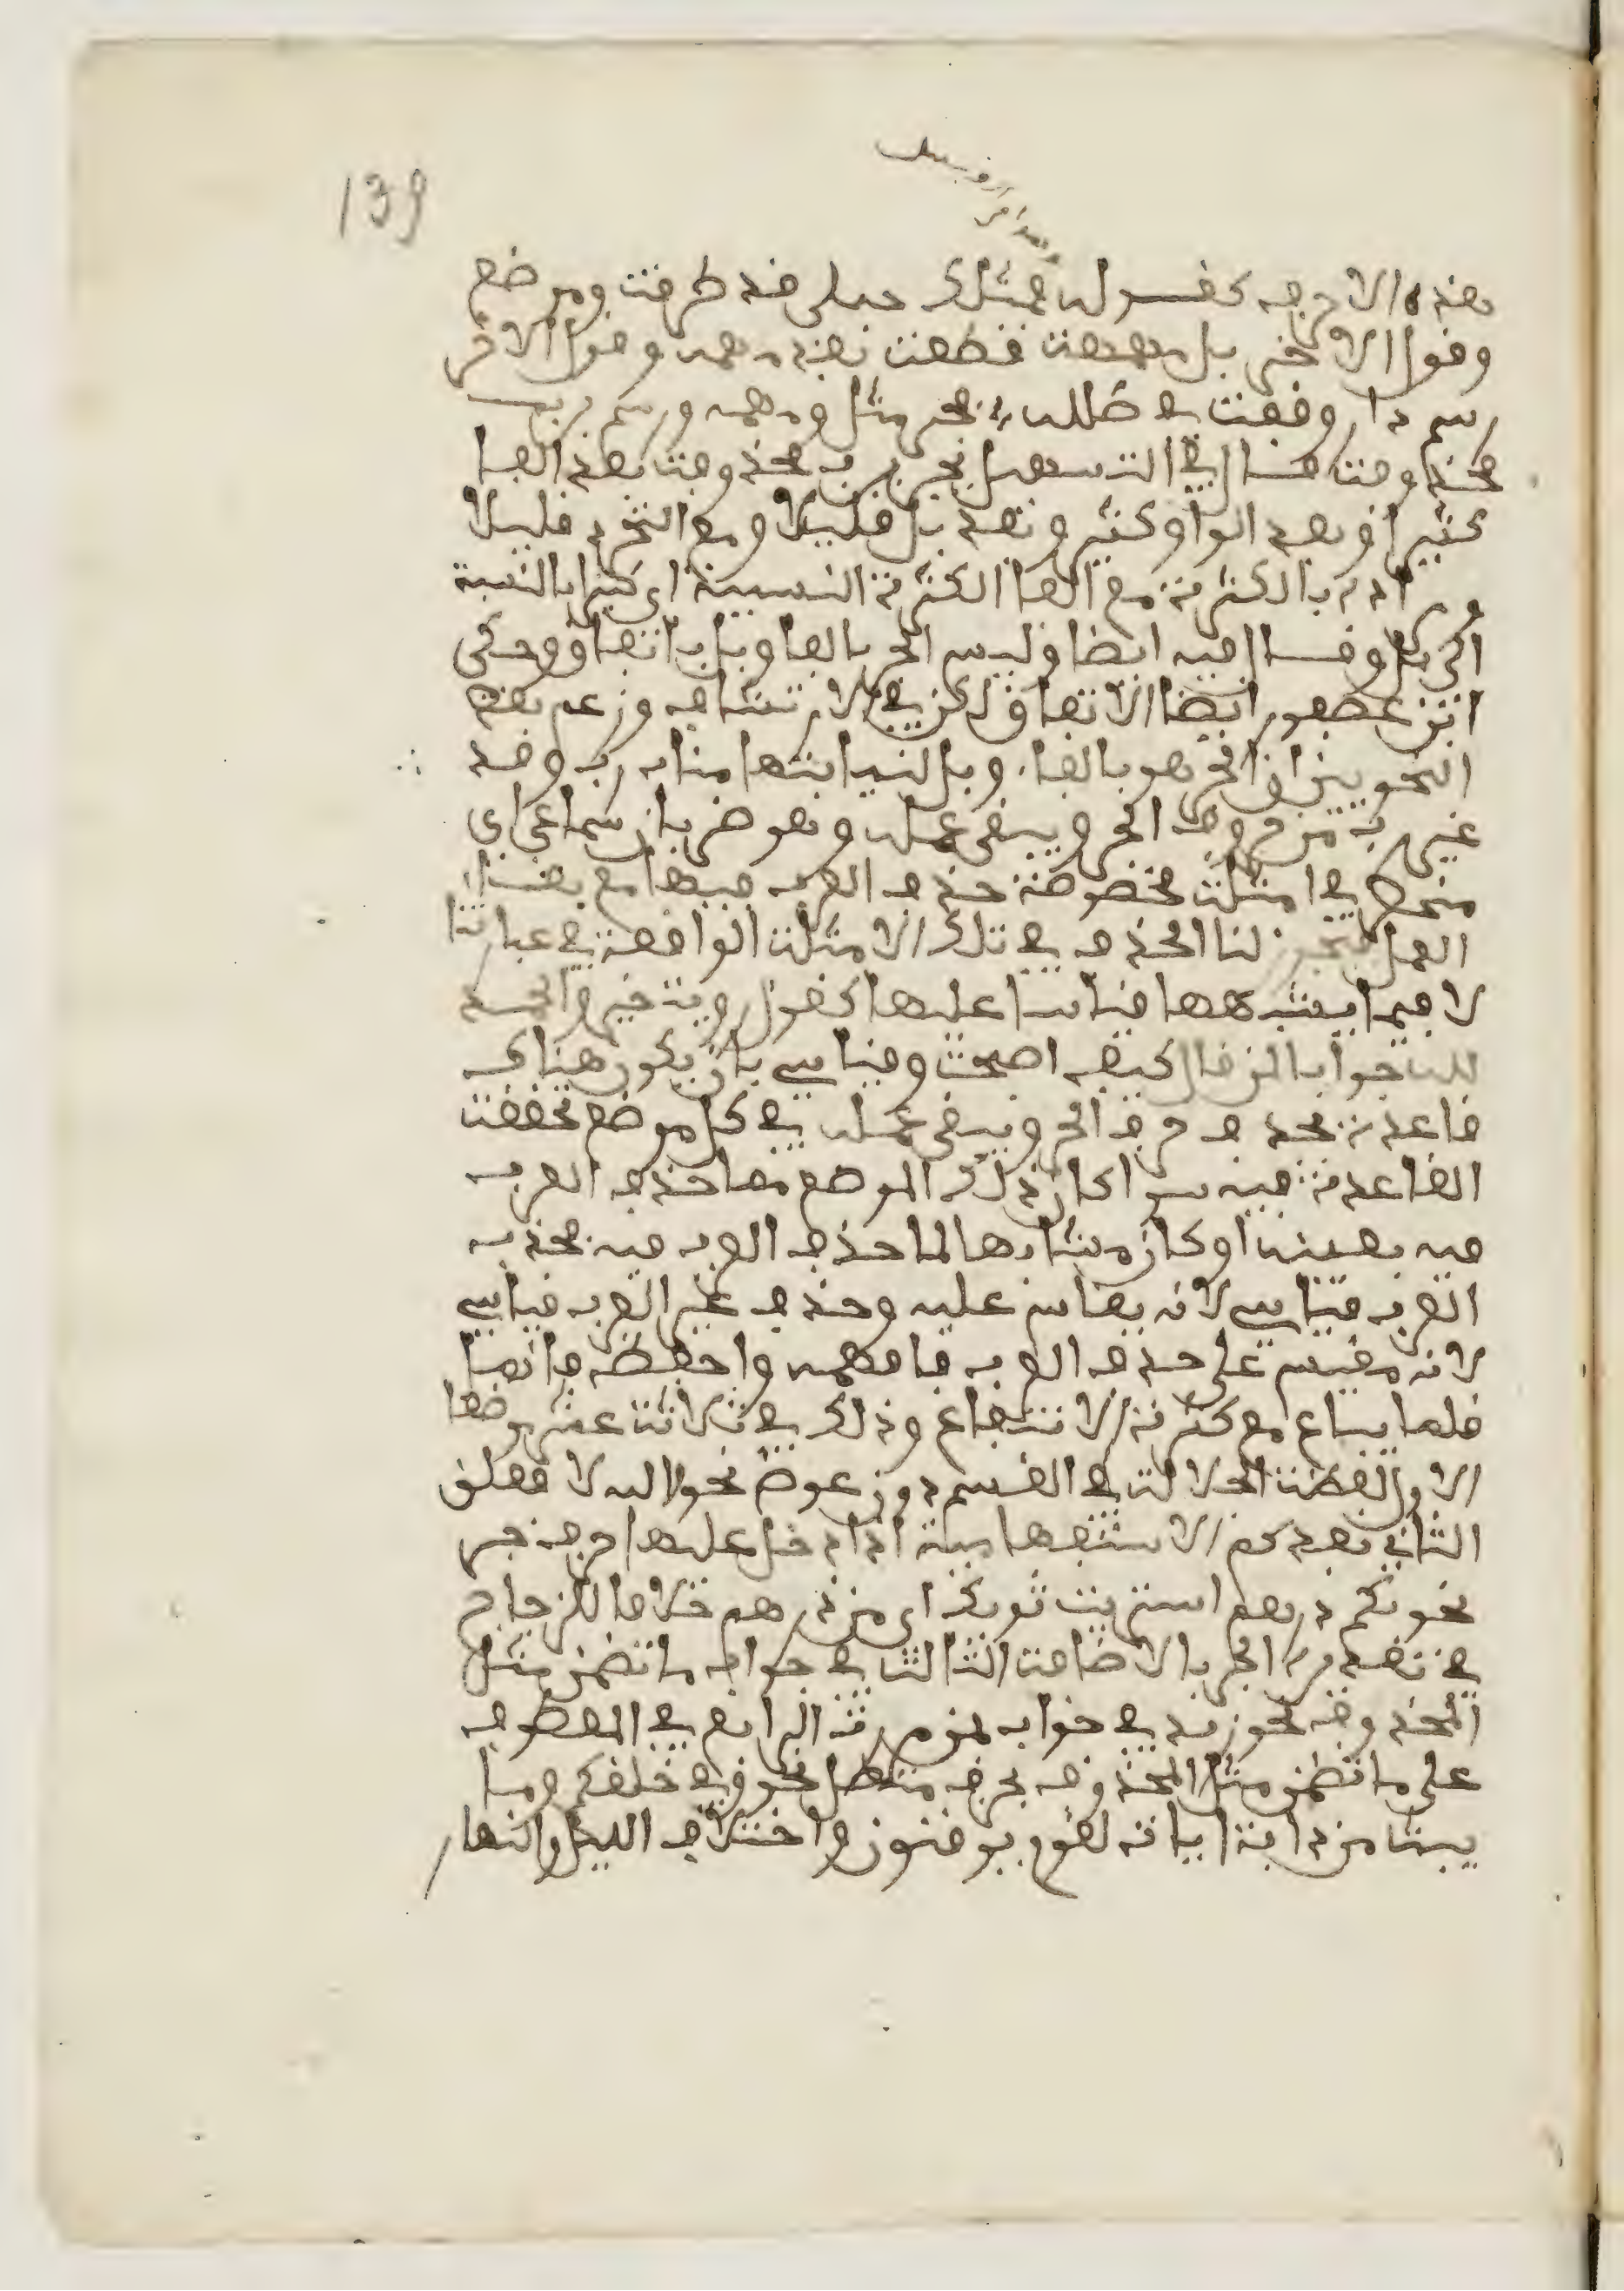 139
هذه الاحرف كقوله فمثلك حبلى قد طرقت ومرضع
وقول الاخر بل مهمه قطعت بعد مهمه وقول الاخر
رسم دار وقفت في طلله فجر مثل ومهمه ورسم برب
محذوفت قال في التسهيل يجر برب محذوفة بعد الفا
كثيرا وبعد الواو اكثر وبعد بل قليلا ومع التجرد قليلا
ومراده بالكثرة مع الفا الكثرة النسبية اي كثير بالنسبة
الى بل وقال فيه ايضا وليس الجر بالفا وبل باتفاق وحكى
ابن عصفور ايضا الاتفاق لكن في الارتشاف وزعم بعض
النحويين ان الجر هو بالفا وبل لنيابتها مناب رب وقد
غير رب من حروف الجر ويبقى عمله وهو ضربان سماعي اي
منحصر في امثلت مخصوصة حذف العرب فيها مع بقا
العمل فيجوز لنا الحذف في تلك الامثلت الواقعة في عبارتنا
لا فيما يشبهها قياسا عليها كقول روبت خير والحمد
لله جوابا لمن قال كيف اصبحت وقياسي بان يكون هناك
قاعدة بحذف حرف الجر ويبقى عمله في كل موضع تحققت
القاعدة فيه سوا كان ذلك الموضع مما حذف العرب
فيه بعينه او كان مشابها لما حذف العرب فيه فحذف
العرب قياسي لانه يقاس عليه وحذف غير العرب قياسي
لانه مقيس على حذف العرب فافهمه واحفظه فانها
قلما يباع مع كثرة الانتفاع وذلك في ثلاثة عشر موضعا
الاول لفظت الجلالت في القسم دون عوض نحو الله لافعلن
الثاني بعد كم الاستفهامية اذا دخل عليها حرف جر
نحو بكم درهم اشتريت ثوبك اي من درهم خلافا للزجاج
في تقديره الجر بالاضافت الثالث في جواب ما تضمن مثل
المحذوف نحو زيد في جواب بمن مررت الرابع في المعطوف
على ما تضمن مثل المحذوف بحرف متصل نحو وفي خلقكم وما
يبث من دابة ايات لقوم يوقنون واختلاف الليل والنهار